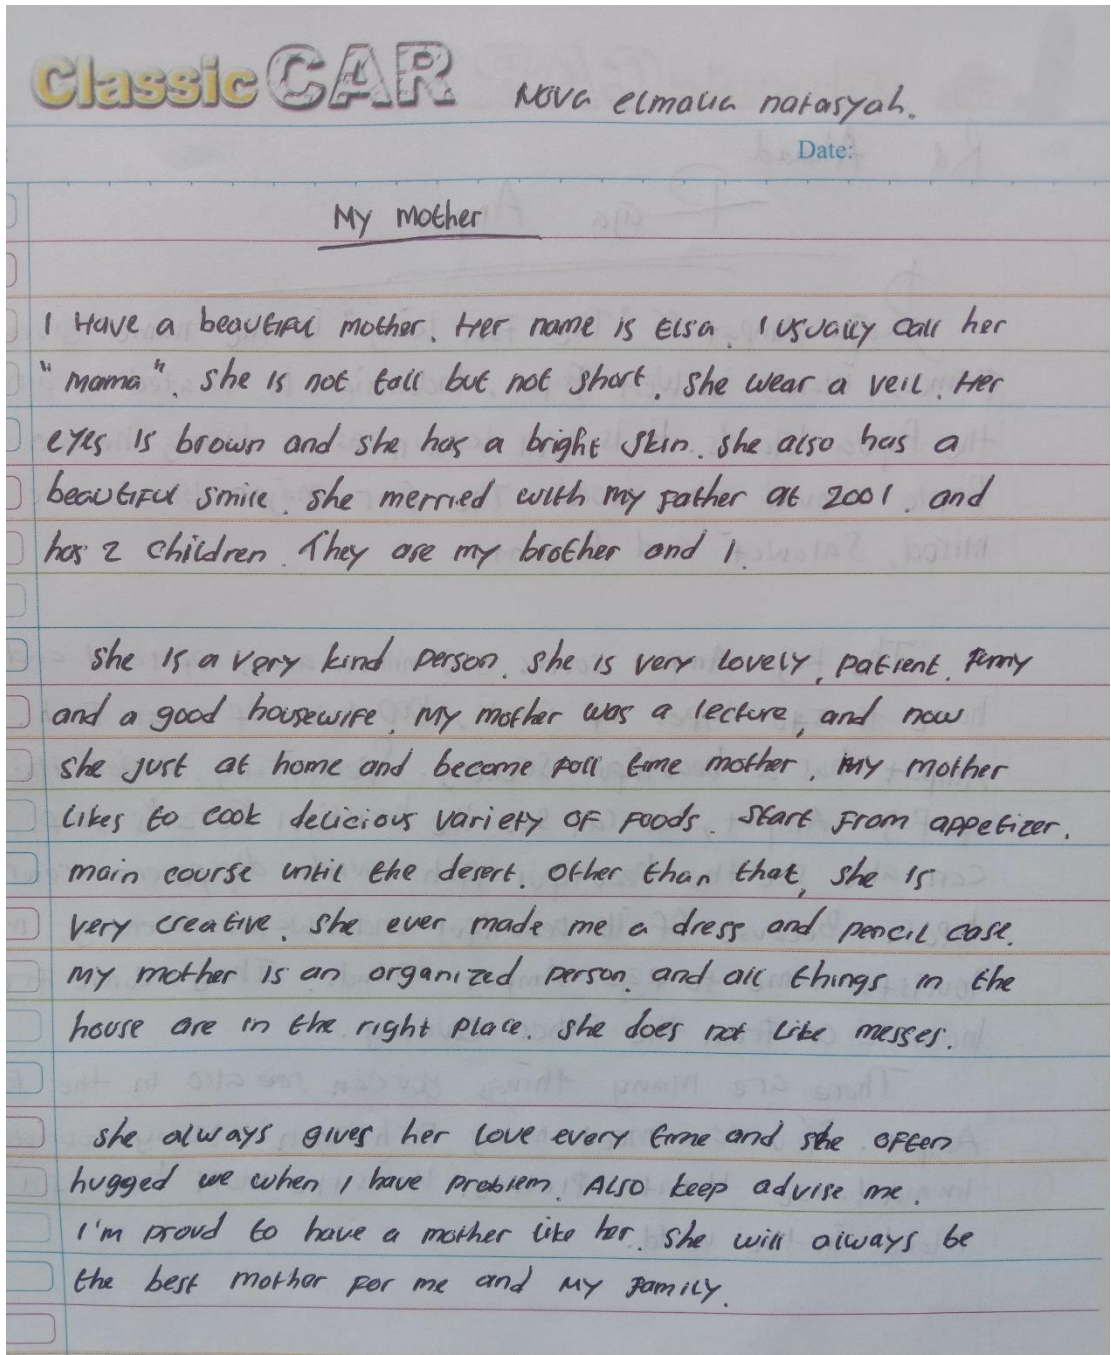 Classic CAR
Nova elmalia natasyah.
Date:
My mother
I Have a beautiful mother. Her name is Elsa. I usually call her
"mama". She is not tall but not short. She wear a veil. Her
eyes is brown and she has a bright skin. she also has a
beautiful smile. she merried with my father at 2001. and
has 2 children. They are my brother and I.
She is a very kind person. she is very lovely, patient. Funny
and a good housewife. My mother was a lecture, and now
she just at home and become foll time mother. My mother
likes to cook delicious variety of foods. Start from appetizer.
main course until the desert. Other than that, she is
very creative. she ever made me a dress and pencil case.
My mother is an organized person. and all things in the
house are in the right place. she does not like messes.
she always gives her love every time and she often
hugged me when I have problem. Also keep advise me.
I'm proud to have a mother like her. she will always be
the best mother for me and my family.